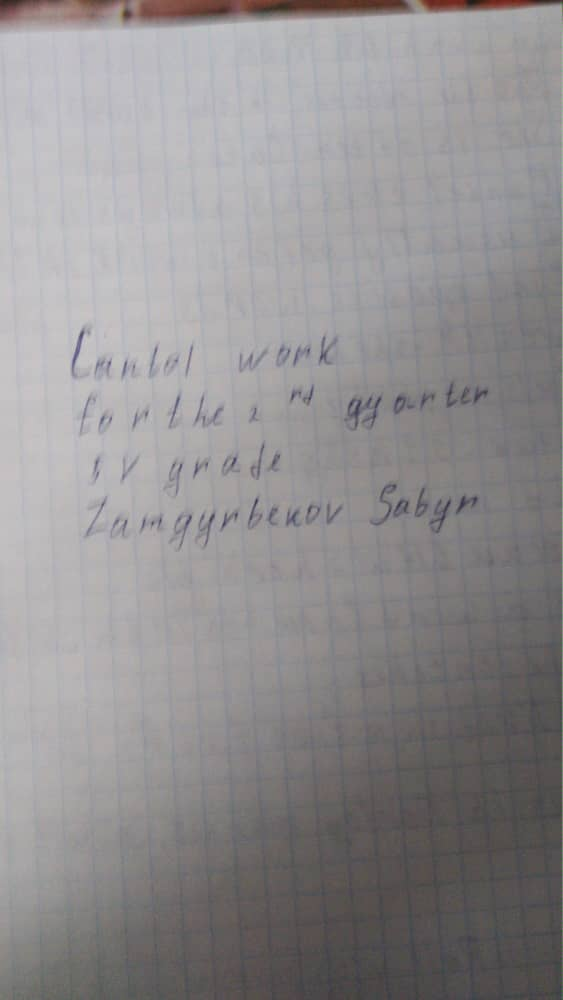 Cantol work
for the 2 rd gyarter
IV grade
Zamgyrbekov Sabyr